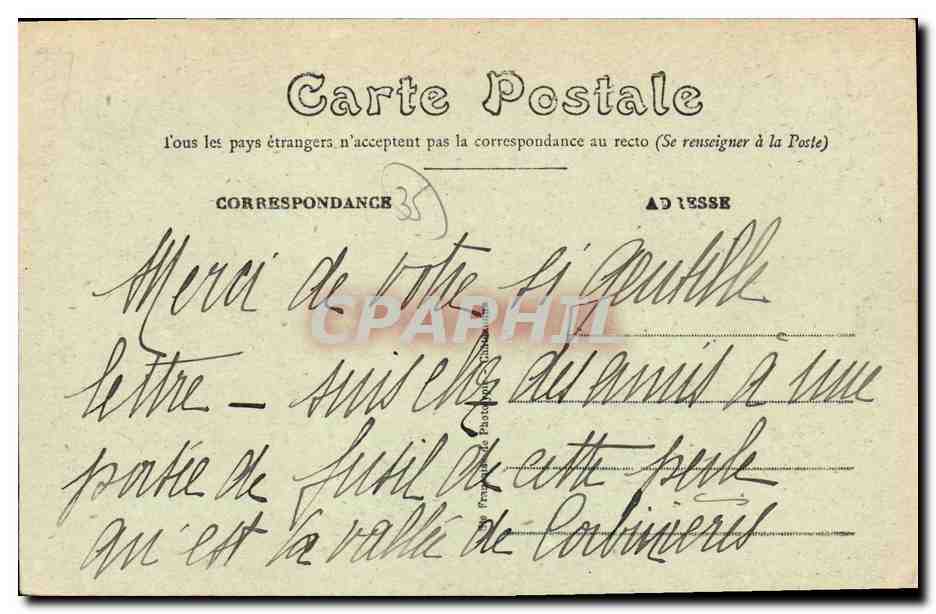 Carte Postale
Tous les pays étrangers n'acceptent pas la correspondance au recto (Se renseigner à la Poste)
CORRESPONDANCE
35
ADRESSE
Merci de votre si gentille
lettre – suis chez des amis à une
portée de fusil de cette perle
qu'est la vallée de Corbinières
CPAPHIL